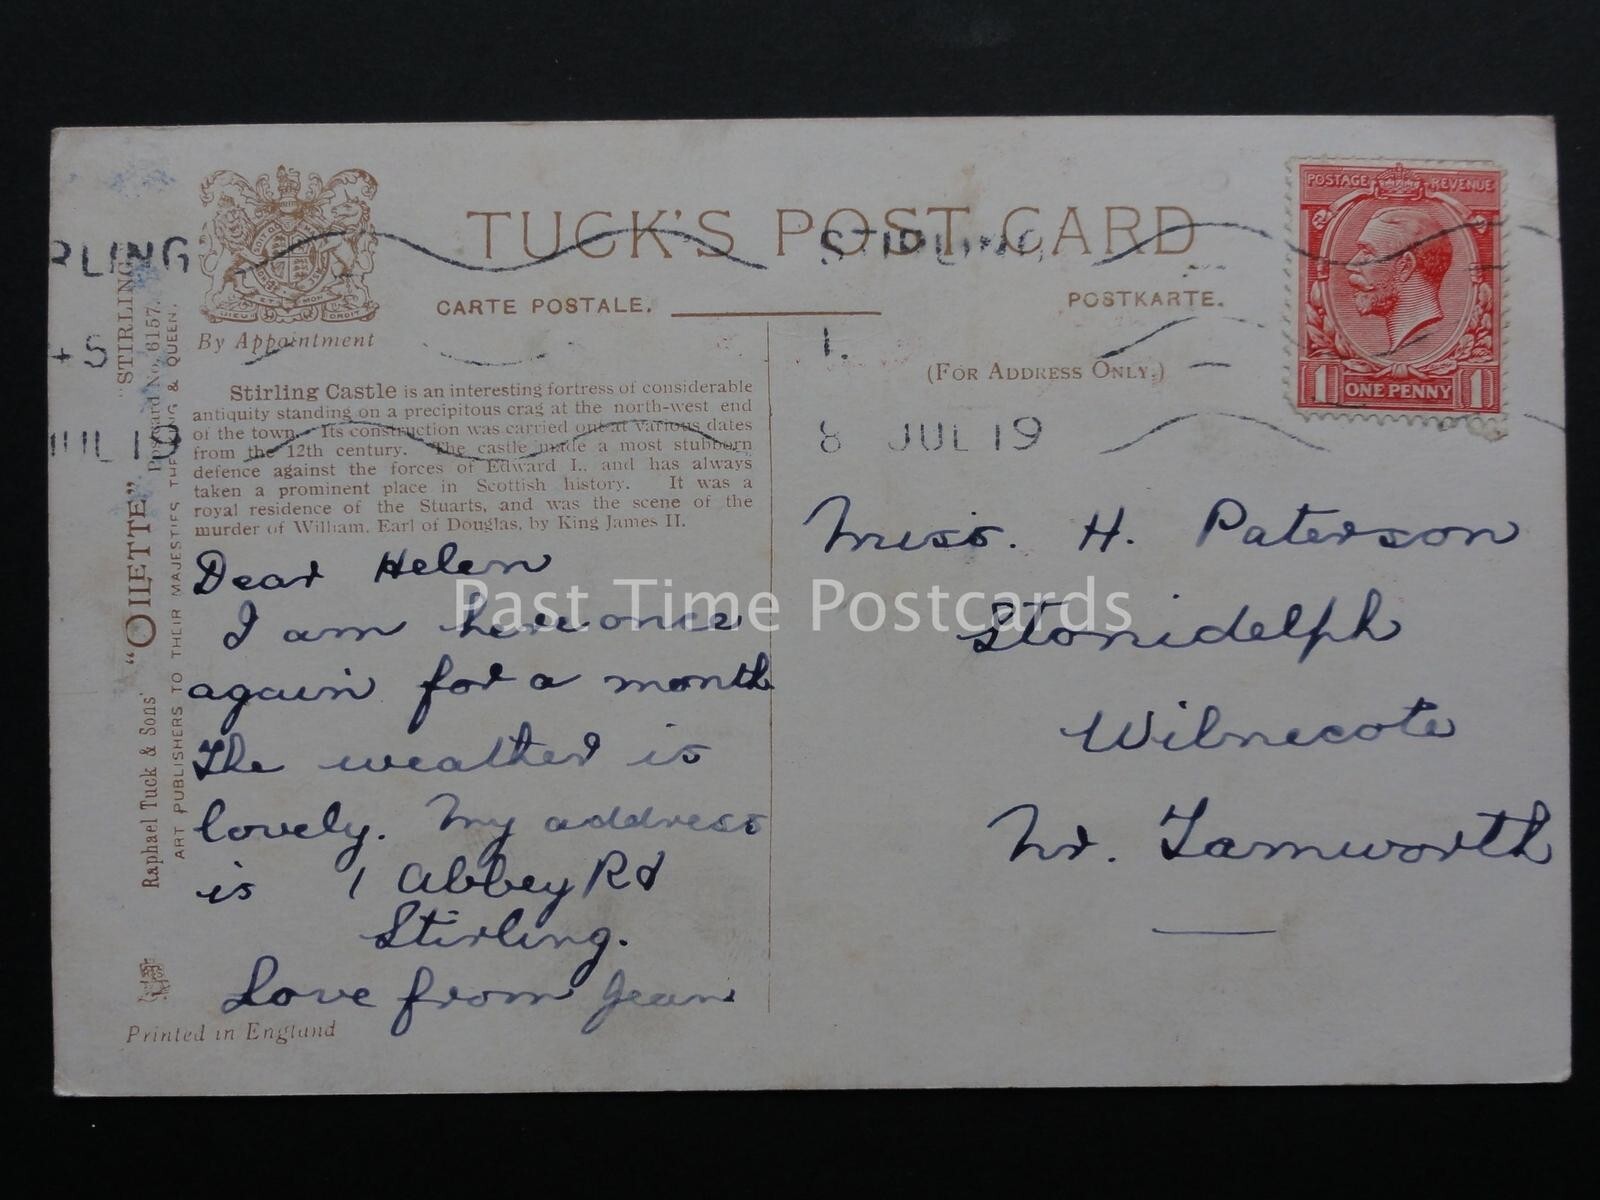 TUCK'S POST CARD
CARTE POSTALE.
POSTKARTE.
By Appointment
(FOR ADDRESS ONLY.)
POSTAGE REVENUE
1 ONE PENNY 1
RLING
STIRLING
+ 5
1.
JUL 19
8 JUL 19
Stirling Castle is an interesting fortress of considerable
antiquity standing on a precipitous crag at the north-west end
of the town. Its construction was carried out at various dates
from the 12th century. The castle made a most stubborn
defence against the forces of Edward I., and has always
taken a prominent place in Scottish history. It was a
royal residence of the Stuarts, and was the scene of the
murder of William, Earl of Douglas, by King James II.
Dear Helen
I am here once
again for a month
The weather is
lovely. My address
is 1 Abbey Rd
Stirling.
Love from Jean
Miss. H. Paterson
Stonidelph
Wilnecote
Nr. Tamworth
Raphael Tuck & Sons' "OILETTE" "STIRLING"
Postcard No. 6157.
ART PUBLISHERS TO THEIR MAJESTIES THE KING & QUEEN.
Printed in England
Past Time Postcards